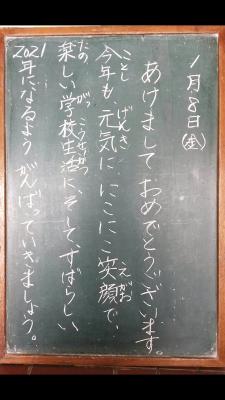 1月8日(金)
あけましておめでとうございます。
今年も、元気に、にこにこ笑顔で、
ことし げんき えがお
楽しい学校生活に、そして、すばらしい
たの がっこうせいかつ
2021年になるよう がんばっていきましょう。